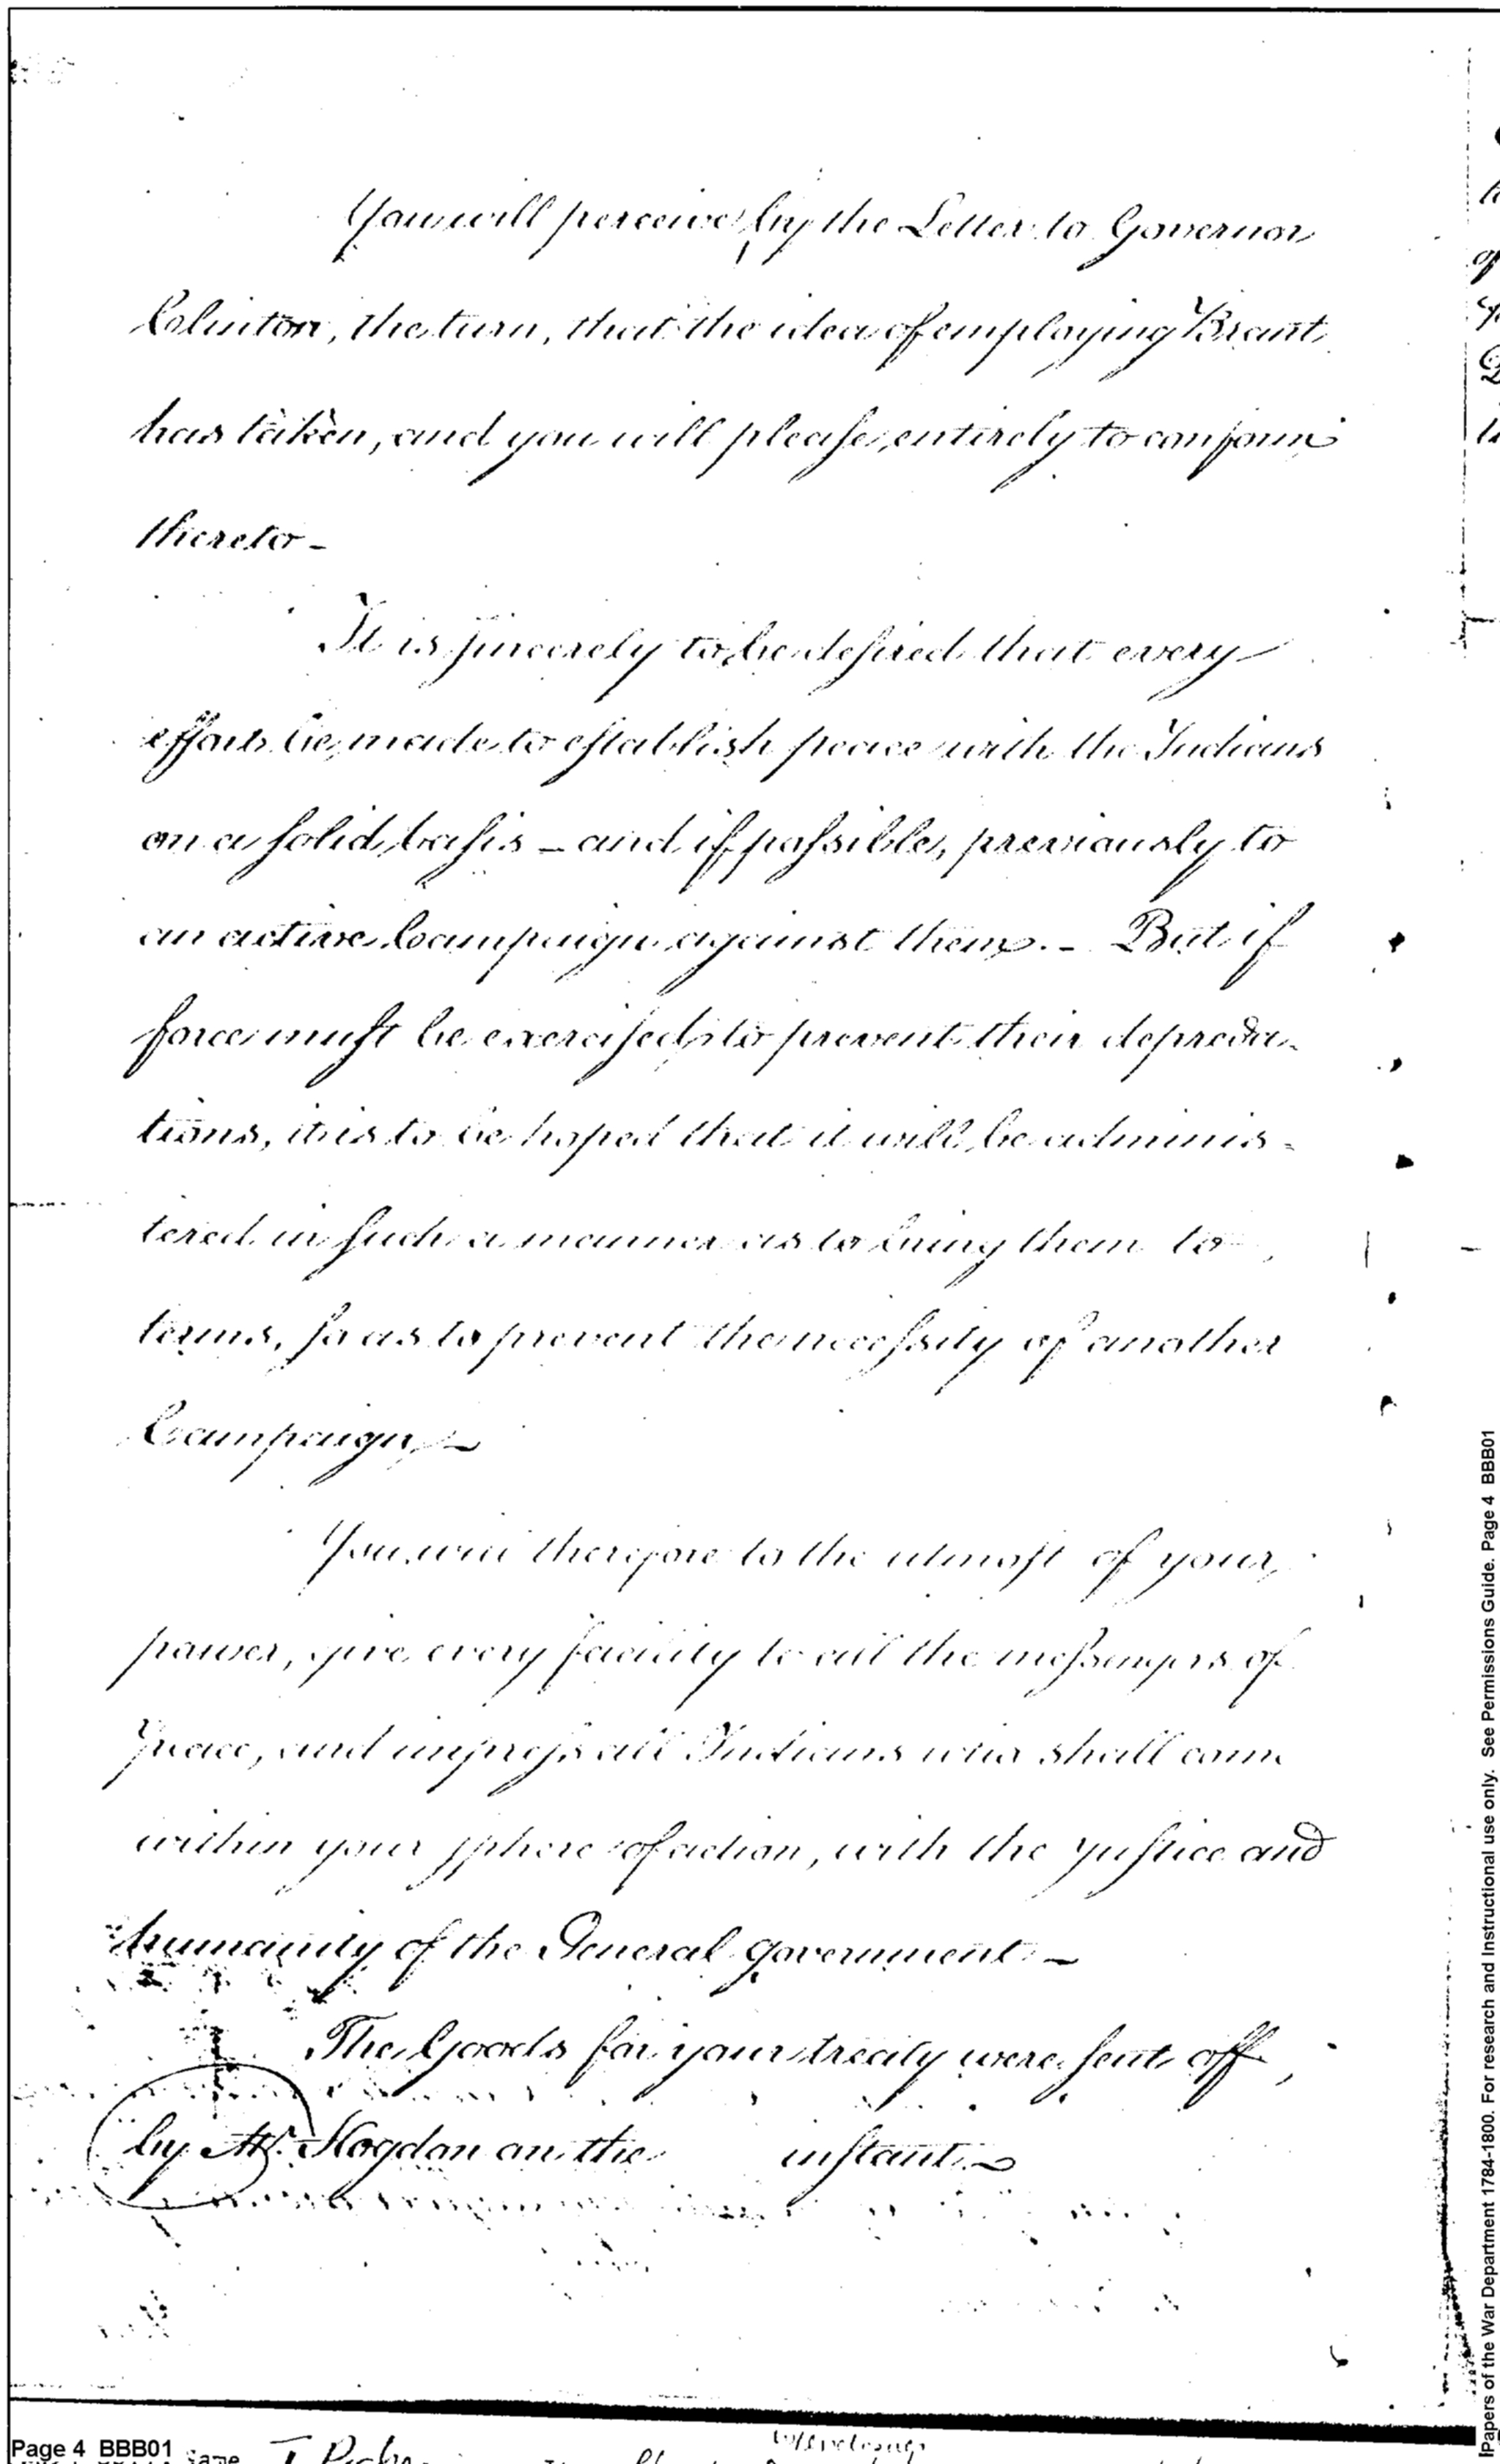 You will perceive by the Letter to Governor
Clinton, the turn, that the idea of employing Brant
has taken, and you will please, entirely to conform
thereto -
It is sincerely to be desired that every
effort be made to establish peace with the Indians
on a solid basis - and if possible, previously to
an active Campaign against them. - But if
force must be exercised, to prevent their depreda-
tions, it is to be hoped that it will be adminis=
tered in such a manner as to bring them to
terms, so as to prevent the necessity of another
Campaign, -
You will therefore to the utmost of your
power, give every facility to all the messengers of
Peace, and impress all Indians who shall come
within your sphere of action, with the justice and
humanity of the General Government -
The Goods for your treaty were sent off
by Mr. Hogdon on the instant -
Page 4 BBB01
same
Papers of the War Department 1784-1800. For research and Instructional use only. See Permissions Guide. Page 4 BBB01